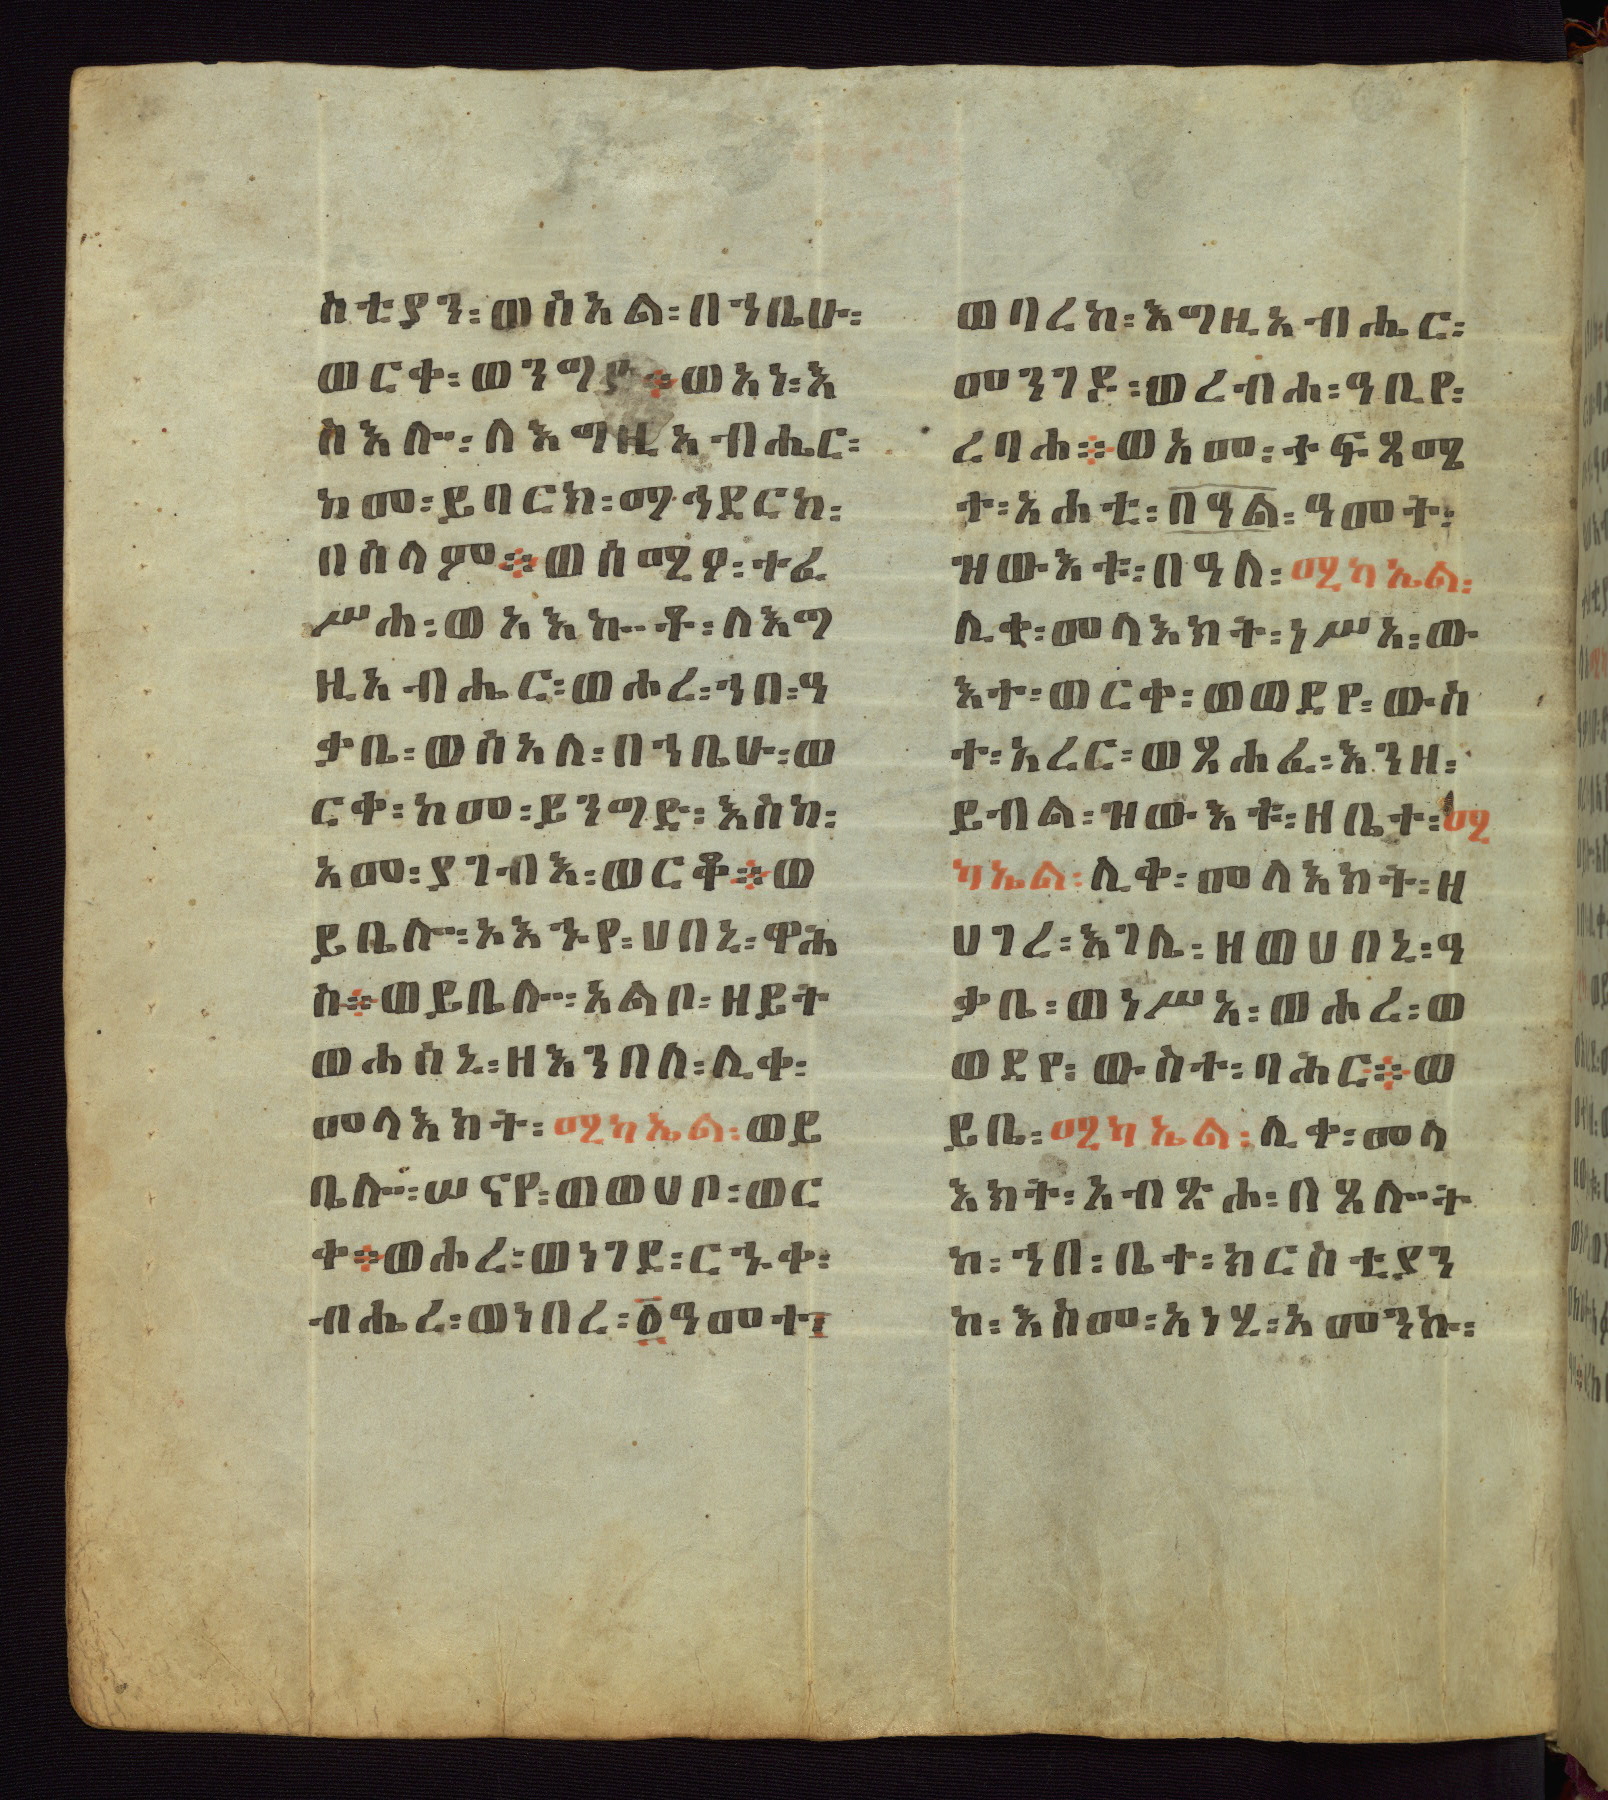 ስቲያን፡ወስአል፡በኀቤሁ፡
ወርቀ፡ወንግድ፨ወአነ፡እ
ስእሎ፡ለእግዚአብሔር፡
ከመ፡ይባርክ፡ማኅደርከ፡
በሰላም፨ወሰሚዖ፡ተፈ
ሥሐ፡ወአእኰቶ፡ለእግ
ዚአብሔር፡ወሐረ፡ኀበ፡ዓ
ቃቤ፡ወስአለ፡በኀቤሁ፡ወ
ርቀ፡ከመ፡ይንግድ፡እስከ፡
አመ፡ያገብእ፡ወርቆ፨ወ
ይቤሎ፡አእኁየ፡ሀበኒ፡ዋሕ
ስ፨ወይቤሎ፡አልቦ፡ዘይት
ወሐሰኒ፡ዘእንበለ፡ሊቀ፡
መላእክት፡ሚካኤል፡ወይ
ቤሎ፡ሠናየ፡ወወሀቦ፡ወር
ቀ፨ወሐረ፡ወነገደ፡ርኁቀ፡
ብሔረ፡ወነበረ፡፩ዓመተ፡
ወባረከ፡እግዚአብሔር፡
መንገዶ፡ወረብሐ፡ዓቢየ፡
ረባሐ፨ወአመ፡ተፍጻሜ
ተ፡አሐቲ፡በዓል፡ዓመት፡
ዝውእቱ፡በዓለ፡ሚካኤል፡
ሊቀ፡መላእክት፡ነሥአ፡ው
እተ፡ወርቀ፡ወወደየ፡ውስ
ተ፡አረር፡ወጸሐፈ፡እንዘ፡
ይብል፡ዝውእቱ፡ዘቤተ፡ሚ
ካኤል፡ሊቀ፡መላእክት፡ዘ
ሀገረ፡እገሌ፡ዘወሀበኒ፡ዓ
ቃቤ፡ወነሥአ፡ወሐረ፡ወ
ወደየ፡ውስተ፡ባሕር፨ወ
ይቤ፡ሚካኤል፡ሊቀ፡መላ
እክት፡አብጽሐ፡በጸሎት
ከ፡ኀበ፡ቤተ፡ክርስቲያን
ከ፡እስመ፡አነሂ፡አመንኩ፡